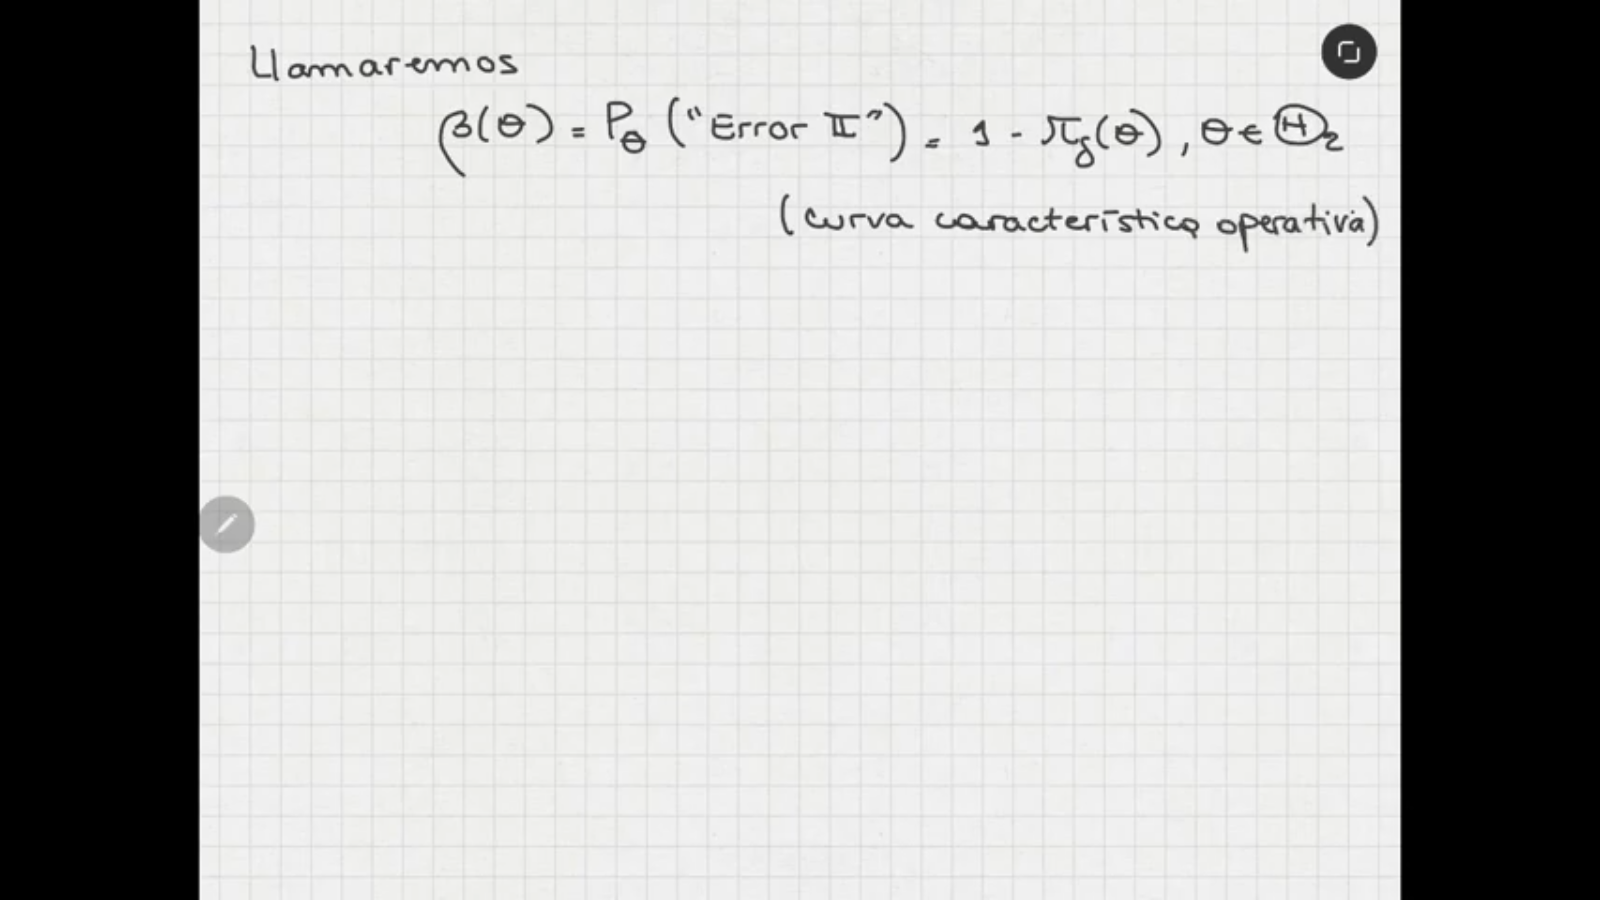 Llamaremos
β(θ) = P_θ ("Error II") = 1 - π_δ(θ), θ ∈ Θ_2
(curva característica operativa)